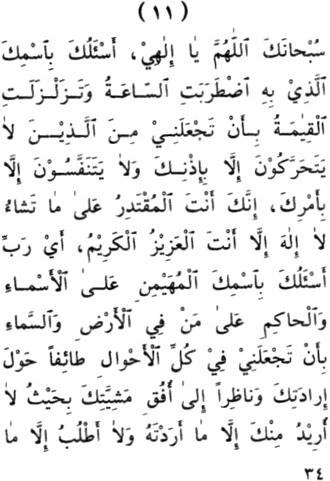 ( ١١ )
سُبْحانَكَ ٱللّٰهُمَّ يٰا إِلٰهِيْ، أَسْئَلُكَ بِٱسْمِكَ
ٱلَّذِيْ بِهِ ٱضْطَرَبَتِ ٱلسّاعَةُ وَتَزَلْزَلَتِ
ٱلْقِيٰمَةُ بِأَنْ تَجْعَلَنِيْ مِنَ ٱلَّذِيْنَ لاٰ
يَتَحَرَّكُوْنَ إِلَّا بِإِذْنِكَ وَلاٰ يَتَنَفَّسُوْنَ إِلَّا
بِأَمْرِكَ، إِنَّكَ أَنْتَ ٱلْمُقْتَدِرُ عَلىٰ مٰا تَشٰاءُ
لاٰ إِلٰهَ إِلَّا أَنْتَ ٱلْعَزِيْزُ ٱلْكَرِيْمُ، أَيْ رَبِّ
أَسْئَلُكَ بِٱسْمِكَ ٱلْمُهَيْمِنِ عَلىٰ ٱلْأَسْمٰاءِ
وَٱلْحاكِمِ عَلىٰ مَنْ فِي ٱلْأَرْضِ وَٱلسَّماءِ
بِأَنْ تَجْعَلَنِيْ فِيْ كُلِّ ٱلْأَحْوالِ طائِفاً حَوْلَ
إِرادَتِكَ وَناظِراً إِلىٰ أُفُقِ مَشِيَّتِكَ بِحَيْثُ لاٰ
أُرِيْدُ مِنْكَ إِلَّا مٰا أَرَدْتَهُ وَلاٰ أَطْلُبُ إِلَّا مٰا
٣٤